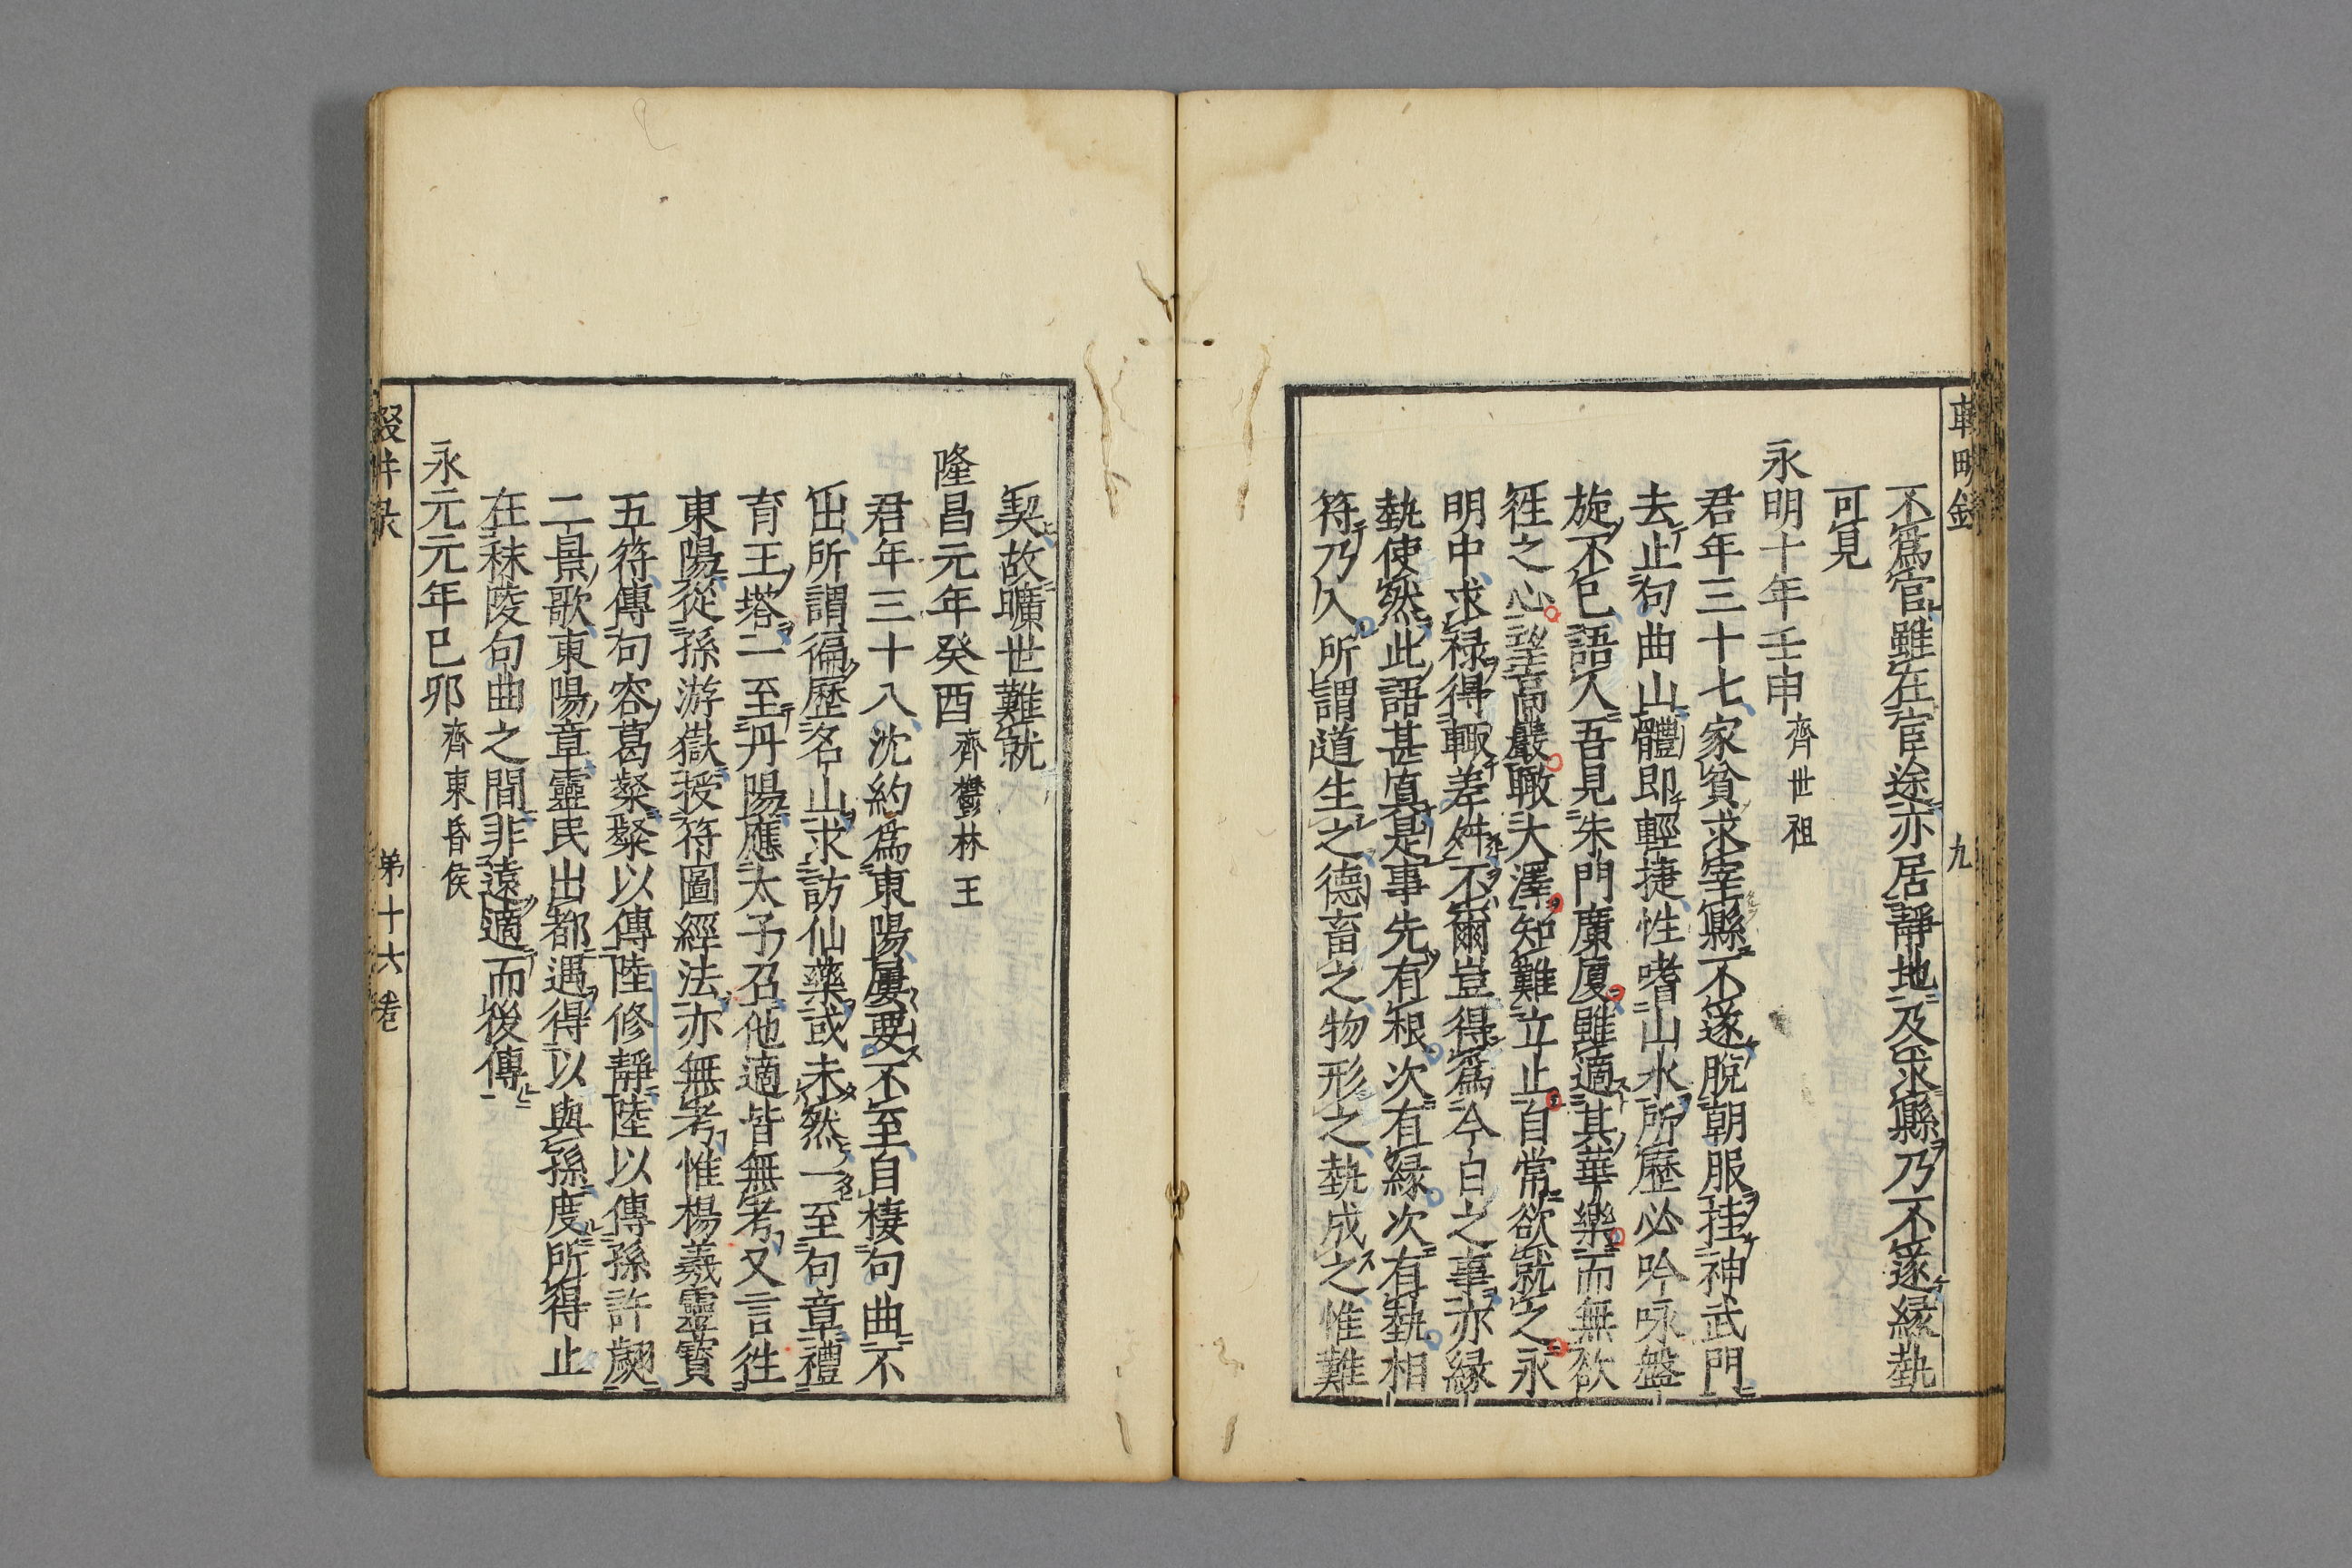 不爲官雖在宦途亦居靜地及求縣乃不遂縁埶
可見
永明十年壬申齊世祖
君年三十七家貧求宰縣不遂脫朝服挂神武門
去止句曲山體即輕捷性嗜山水所歷必吟咏盤
旋不已語人吾見朱門廣厦雖適其華樂而無欲
徃之心望高巖瞰大澤知難立止自常欲就之永
明中求禄得輙差舛不爾豈得爲今日之事亦縁
埶使然此語甚真是事先有根次有縁次有埶相
符乃久所謂道生之德畜之物形之埶成之惟難
契故曠世難就
隆昌元年癸酉齊鬱林王
君年三十八沈約爲東陽屢要不至自棲句曲不
出所謂徧歷名山求訪仙藥或未然一至句章禮
育王塔一至丹陽應太子召他適皆無考又言徃
東陽從孫游嶽授符圖經法亦無考惟楊羲靈寳
五符傳句容葛粲粲以傳陸修靜陸以傳孫許翽
二景歌東陽章靈民出都遇得以與孫度所得止
在秣陵句曲之間非遠適而後傳
永元元年己卯齊東昏侯
第十六卷
九